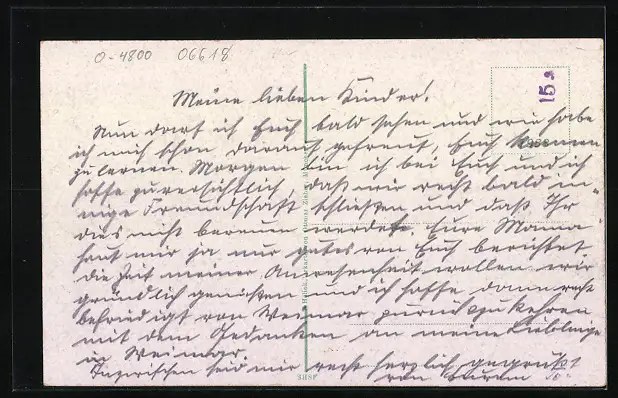 0-4800 06618
15
Meine lieben Kinder!
Nun darf ich Euch bald sehen und wie habe
ich mich schon darauf gefreut, Euch kennen
zu lernen. Morgen bin ich bei Euch und ich
hoffe zuversichtlich, daß wir recht bald in-
nige Freundschaft schließen und daß Ihr
dies nicht bereuen werdet. Eure Mama
hat mir ja nur gutes von Euch berichtet
die Zeit meiner Anwesenheit wollen wir
gründlich genießen und ich hoffe dann recht
befriedigt von Weimar zurückzukehren
mit dem Gedanken an meine Lieblinge
in Weimar.
Inzwischen seid mir recht herzlich gegrüßt
von Eurem